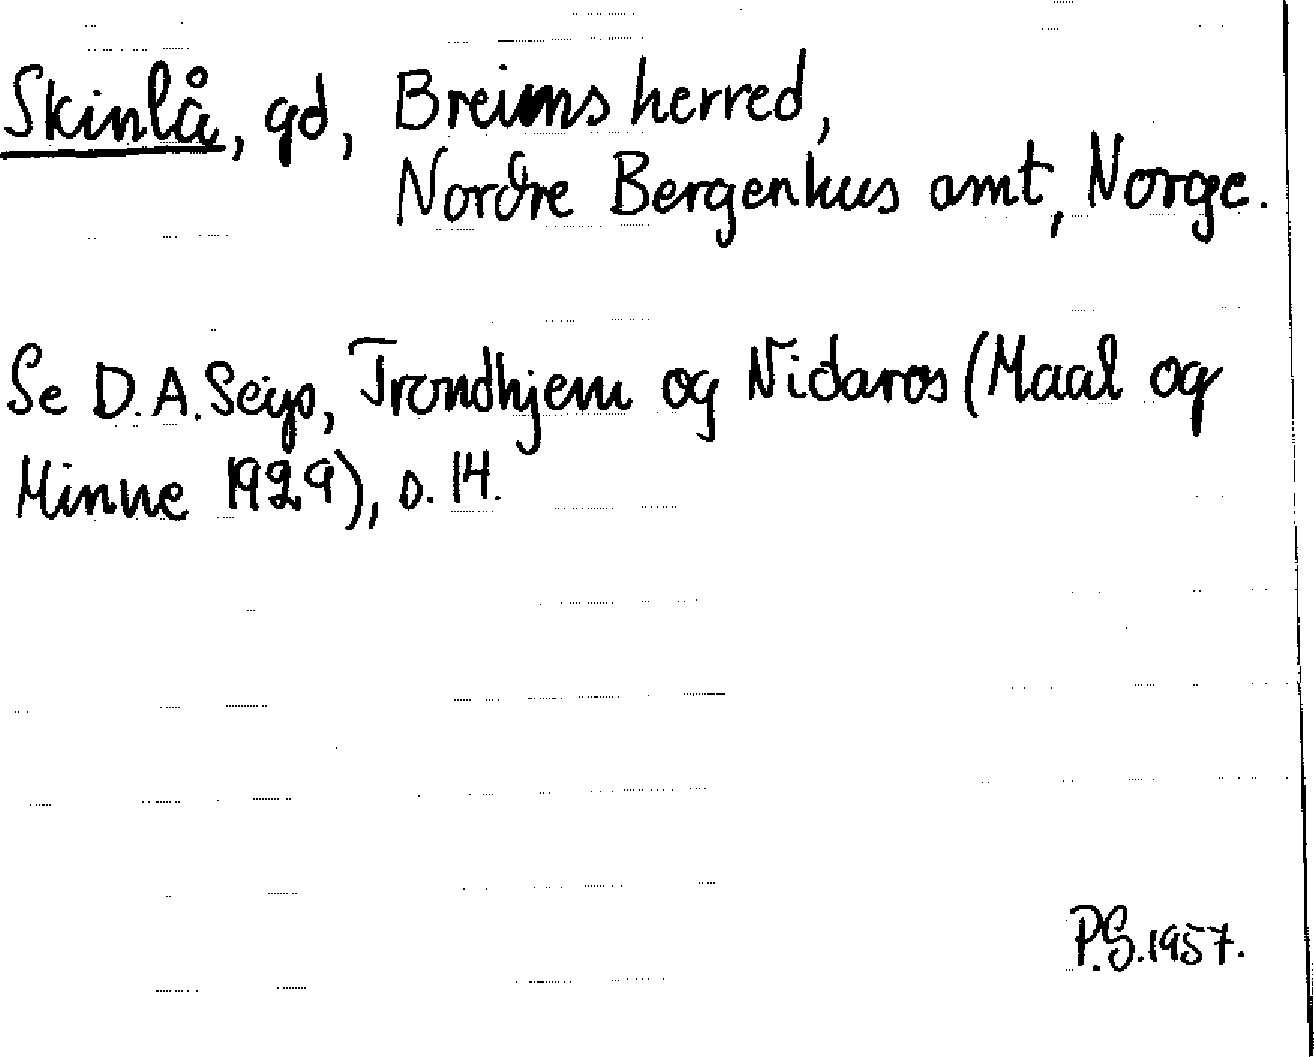 Skinlå, gd, Breims herred,
Nordre Bergenhus amt, Norge.
Se D. A. Seips, Trondhjem og Nidaros (Maal og
Minne 1929), s. 14.
P.S. 1957.